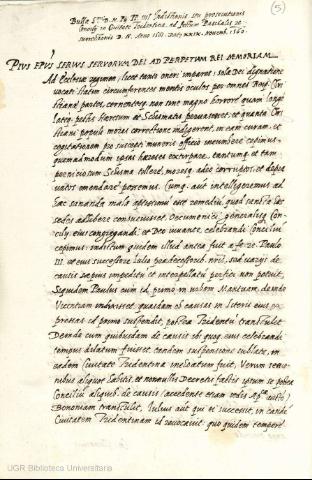 (5)
Bulla S.mi D. N. Pij PP. IIII Indictionis seu prosecutionis
Concilij in Civitate Tridentina ad festum Paschalis re
surrectionis D. N. Anno 1561. Dat. XXIX. Novemb. 1560.
PIVS EPVS SERVVS SERVORVM DEI AD PERPETVAM REI MEMORIAM
Ad Ecclesiæ regimen, licet tanto oneri impares, sola Dei dignatione
vocati statim circumferentes mentis oculos per omnes Reip. Chri
stianæ partes, cernentes non sine magno horrore quam longè
lateq. pestis Hæresum et Schismatis pervasisset, et quanta Chri
stiani populi mores correctione indigerent, in eam curam, et
cogitationem pro suscepti muneris officio incumbere cepimus,
quemadmodum ipsas hæreses extirpare, tantumq. et tam
perniciosum Schisma tollere, moresq. adeo corruptos, et depra
vatos emendare possemus. Cumq. aut intelligeremus ad
hæc sananda mala aptissimum esse remedium, quod sancta hæc
sedes adhibere consuevisset, Oecumenici, generalisq. Con
cilij congregandi, et Deo iuvante, celebrandi consilium
cepimus. indictum quidem illud antea fuit a fe. re. Paulo
III. et eius successore Iulio prædecessorib. nris, sed varijs de
causis sæpius impeditum et interpellatum perfici non potuit,
Siquidem Paulus cum id primo in urbem Mantuam, deinde
Vicentiam indixisset, quasdam ob causas in literis eius ex
pressas id primo suspendit, postea Tridentum transtulit
Deinde cum quibusdam de causis ibi quoq. eius celebrandi
tempus dilatum fuisset, tandem suspensione sublata, in
eadem Civitate Tridentina inchoatum fuit, Verum sessio
nibus aliquot habitis, et nonnullis Decretis factis ipsum se postea
Concilium aliquib. de causis (accedente etiam sedis Ap.cæ auct.te)
Bononiam transtulit, Iulius aut qui ei successit, in eandē
Civitatem Tridentinam id revocavit, quo quidem tempore
UGR Biblioteca Universitaria